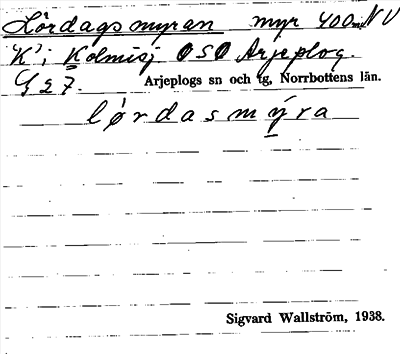 Lördagsmyran myr 400m NV
K i Kolmisj OSO Arjeplog.
G 27. Arjeplogs sn och tg, Norrbottens län.
lørdasmýra
Sigvard Wallström, 1938.